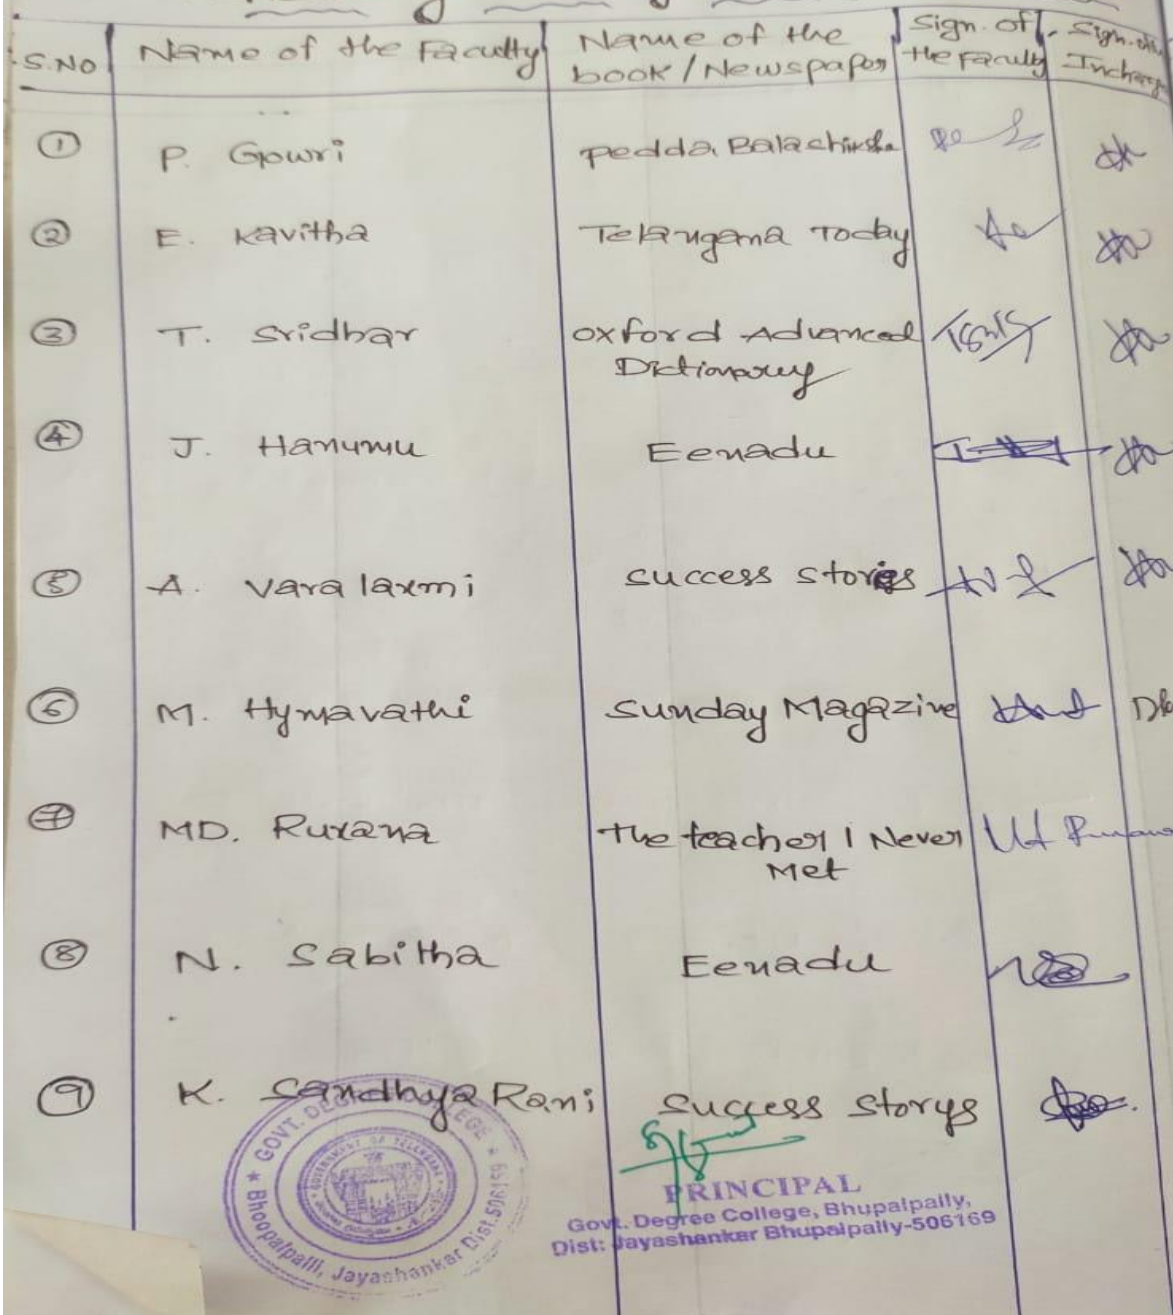 S.NO Name of the Faculty Name of the book/Newspaper Sign. of the Faculty Sign. Incharge
① P. Gowri pedda Balachiksha
② E. Kavitha Telangana Today
③ T. Sridhar Oxford Advanced
Dictionary
④ J. Hanumu Eenadu
⑤ A. Vara laxmi success stories
⑥ M. Hymavathi Sunday Magazine
⑦ MD. Ruxana The teacher I Never
Met
⑧ N. Sabitha Eenadu
⑨ K. Sandhya Rani success storys
GOVT. DEGREE COLLEGE
GOVERNMENT OF TELANGANA
Bhoopalpalli, Jayashankar Dist.506169
PRINCIPAL
Govt. Degree College, Bhupalpally,
Dist: Jayashankar Bhupalpally-506169